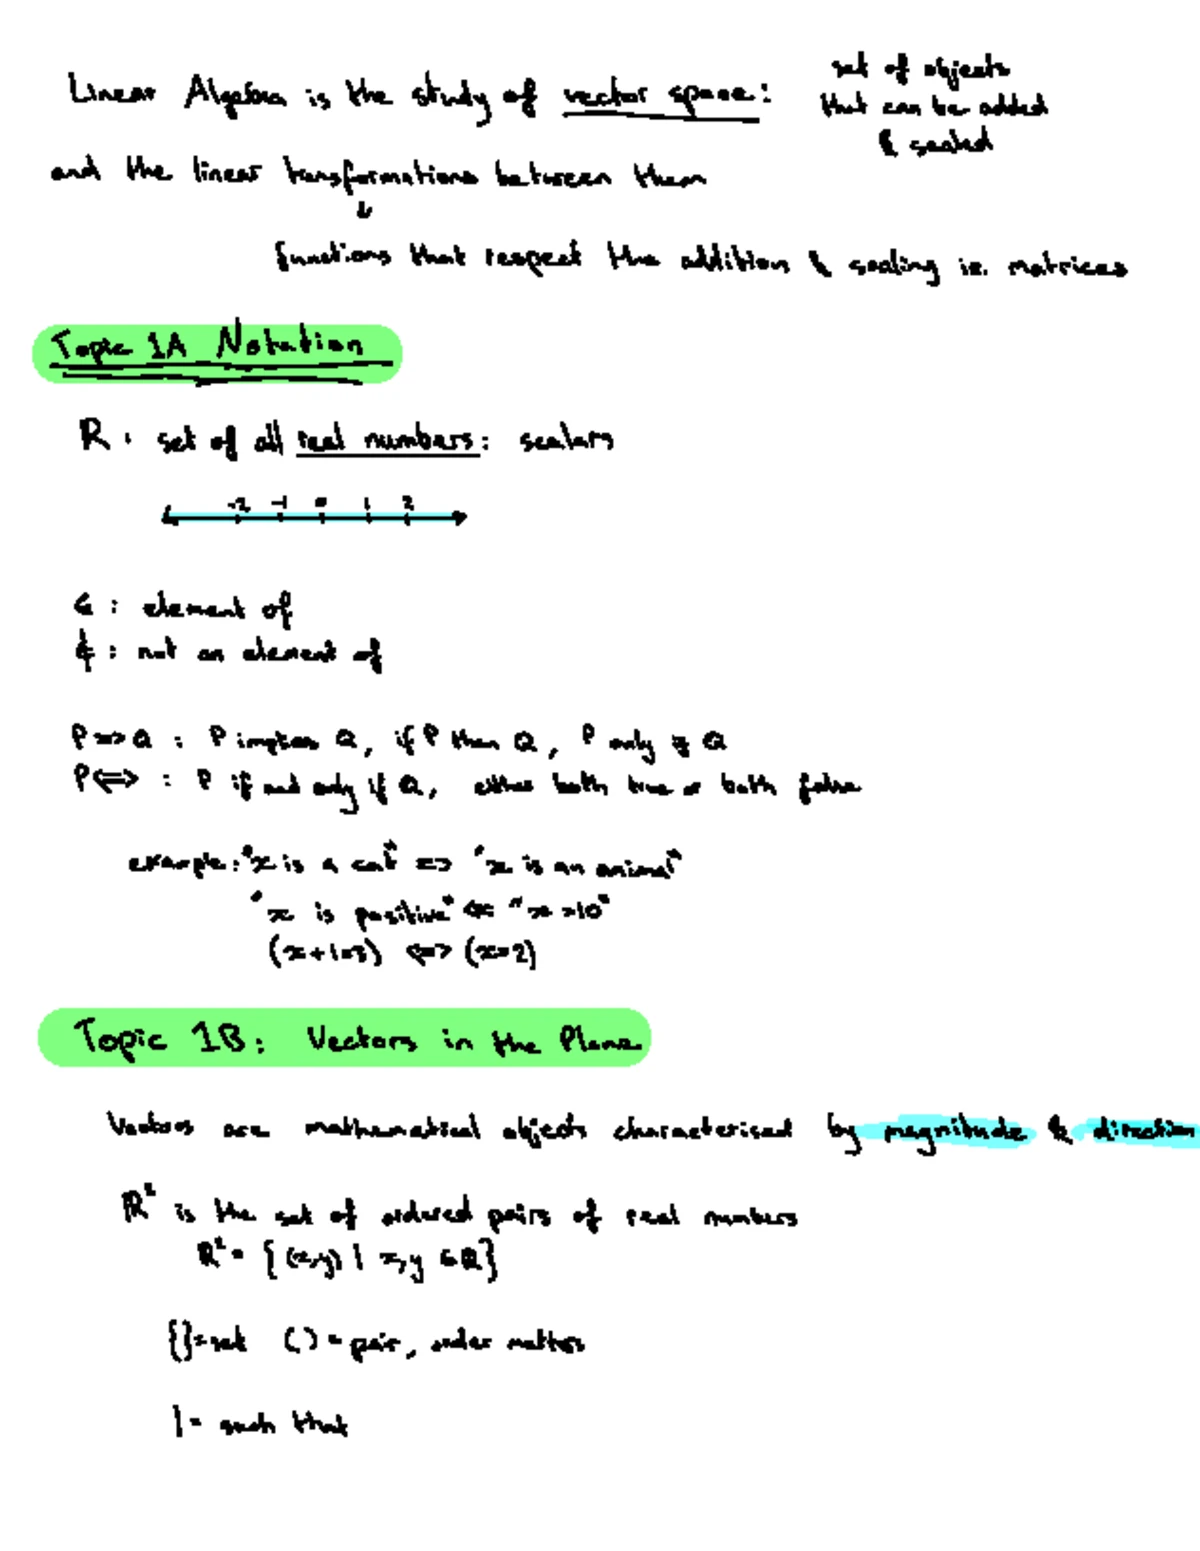 Linear Algebra is the study of vector space:
set of objects
that can be added
& scaled
and the linear transformations between them
↓
functions that respect the addition & scaling ie. matrices
Topic 1A Notation
ℝ : set of all real numbers: scalars
-2 -1 0 1 2
∈ : element of
∉ : not an element of
P => Q : P implies Q, if P then Q, P only if Q
P <=> : P if and only if Q, either both true or both false
example: "x is a cat" => "x is an animal"
"x is positive" <= "x =10"
(x+1=3) <=> (x=2)
Topic 1B: Vectors in the Plane
Vectors are mathematical objects characterised by magnitude & direction
ℝ² is the set of ordered pairs of real numbers
ℝ² = {(x,y) | x,y ∈ ℝ}
{} = set ( ) = pair, order matters
| = such that